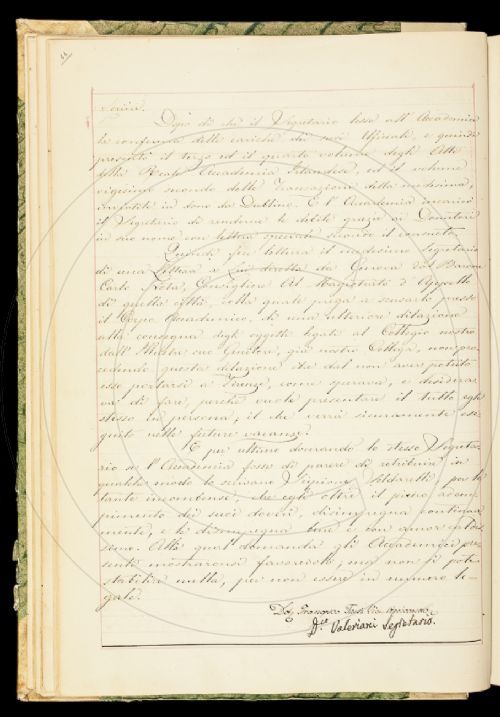 Dopo di che il Segretario lesse all'Accademia
la conferma delle cariche dei suoi Uffiziali, e quindi
presentò il terzo ed il quarto volume degli Atti
della Reale Accademia Irlandese, ed il volume
vigesimo secondo delle Transazione della medesima,
in dono da Dublino. E l'Accademia incaricò
il Segretario di renderne le debite grazie ai Donatori
in suo nome con lettera speciale secondo il consueto.
Quindi fu lettura il medesimo Segretario
di una Lettera a Lui diretta da Genova dal Barone
Carlo Consigliere al Magistrato d'Appello
di quella città, colla quale prega a scusarlo presso
il Corpo Accademico, di una ulteriore dilazione
alla consegna degli oggetti legati al Collegio nostro
dall'Illustre suo Genitore, già nostro Collega, non pro-
cedendo questa dilazione che dal non aver potuto
esso portarsi a Firenze, come sperava, e desidera-
va di fare, perchè vuole presentare il tutto egli
stesso in persona; il che verrà sicuramente ese-
guito nelle future vacanze.
E per ultimo domandò lo stesso Segreta-
rio se l'Accademia fosse di parere di retribuire in
qualche modo lo scrivano Scipione per le
tante incombenze, che egli oltre il pieno adem-
pimento dei suoi doveri, disimpegna continua-
mente, e le disimpegna bene e con amore
Alla qual domanda gli Accademici pre-
senti mostraronsi favorevoli, ma non si potè
stabilire nulla, per non essere in numero le-
gale.
Valeriani Segretario.